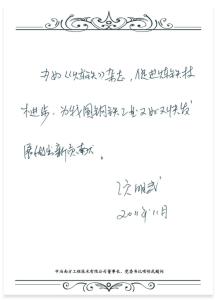 办好《炼铁》杂志，促进炼铁技
术进步，为我国钢铁工业又好又快发
展做出新贡献。
2011年11月
中冶南方工程技术有限公司董事长、党委书记项明武题词